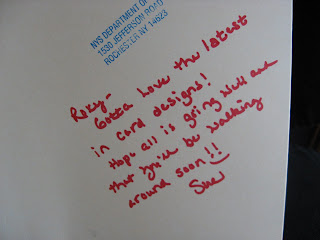 NYS DEPARTMENT OF
1530 JEFFERSON ROAD
ROCHESTER NY 14623
Roxy-
Gotta love the latest
in card designs!
Hope all is going well and
that you'll be walking
around soon!!
Sue